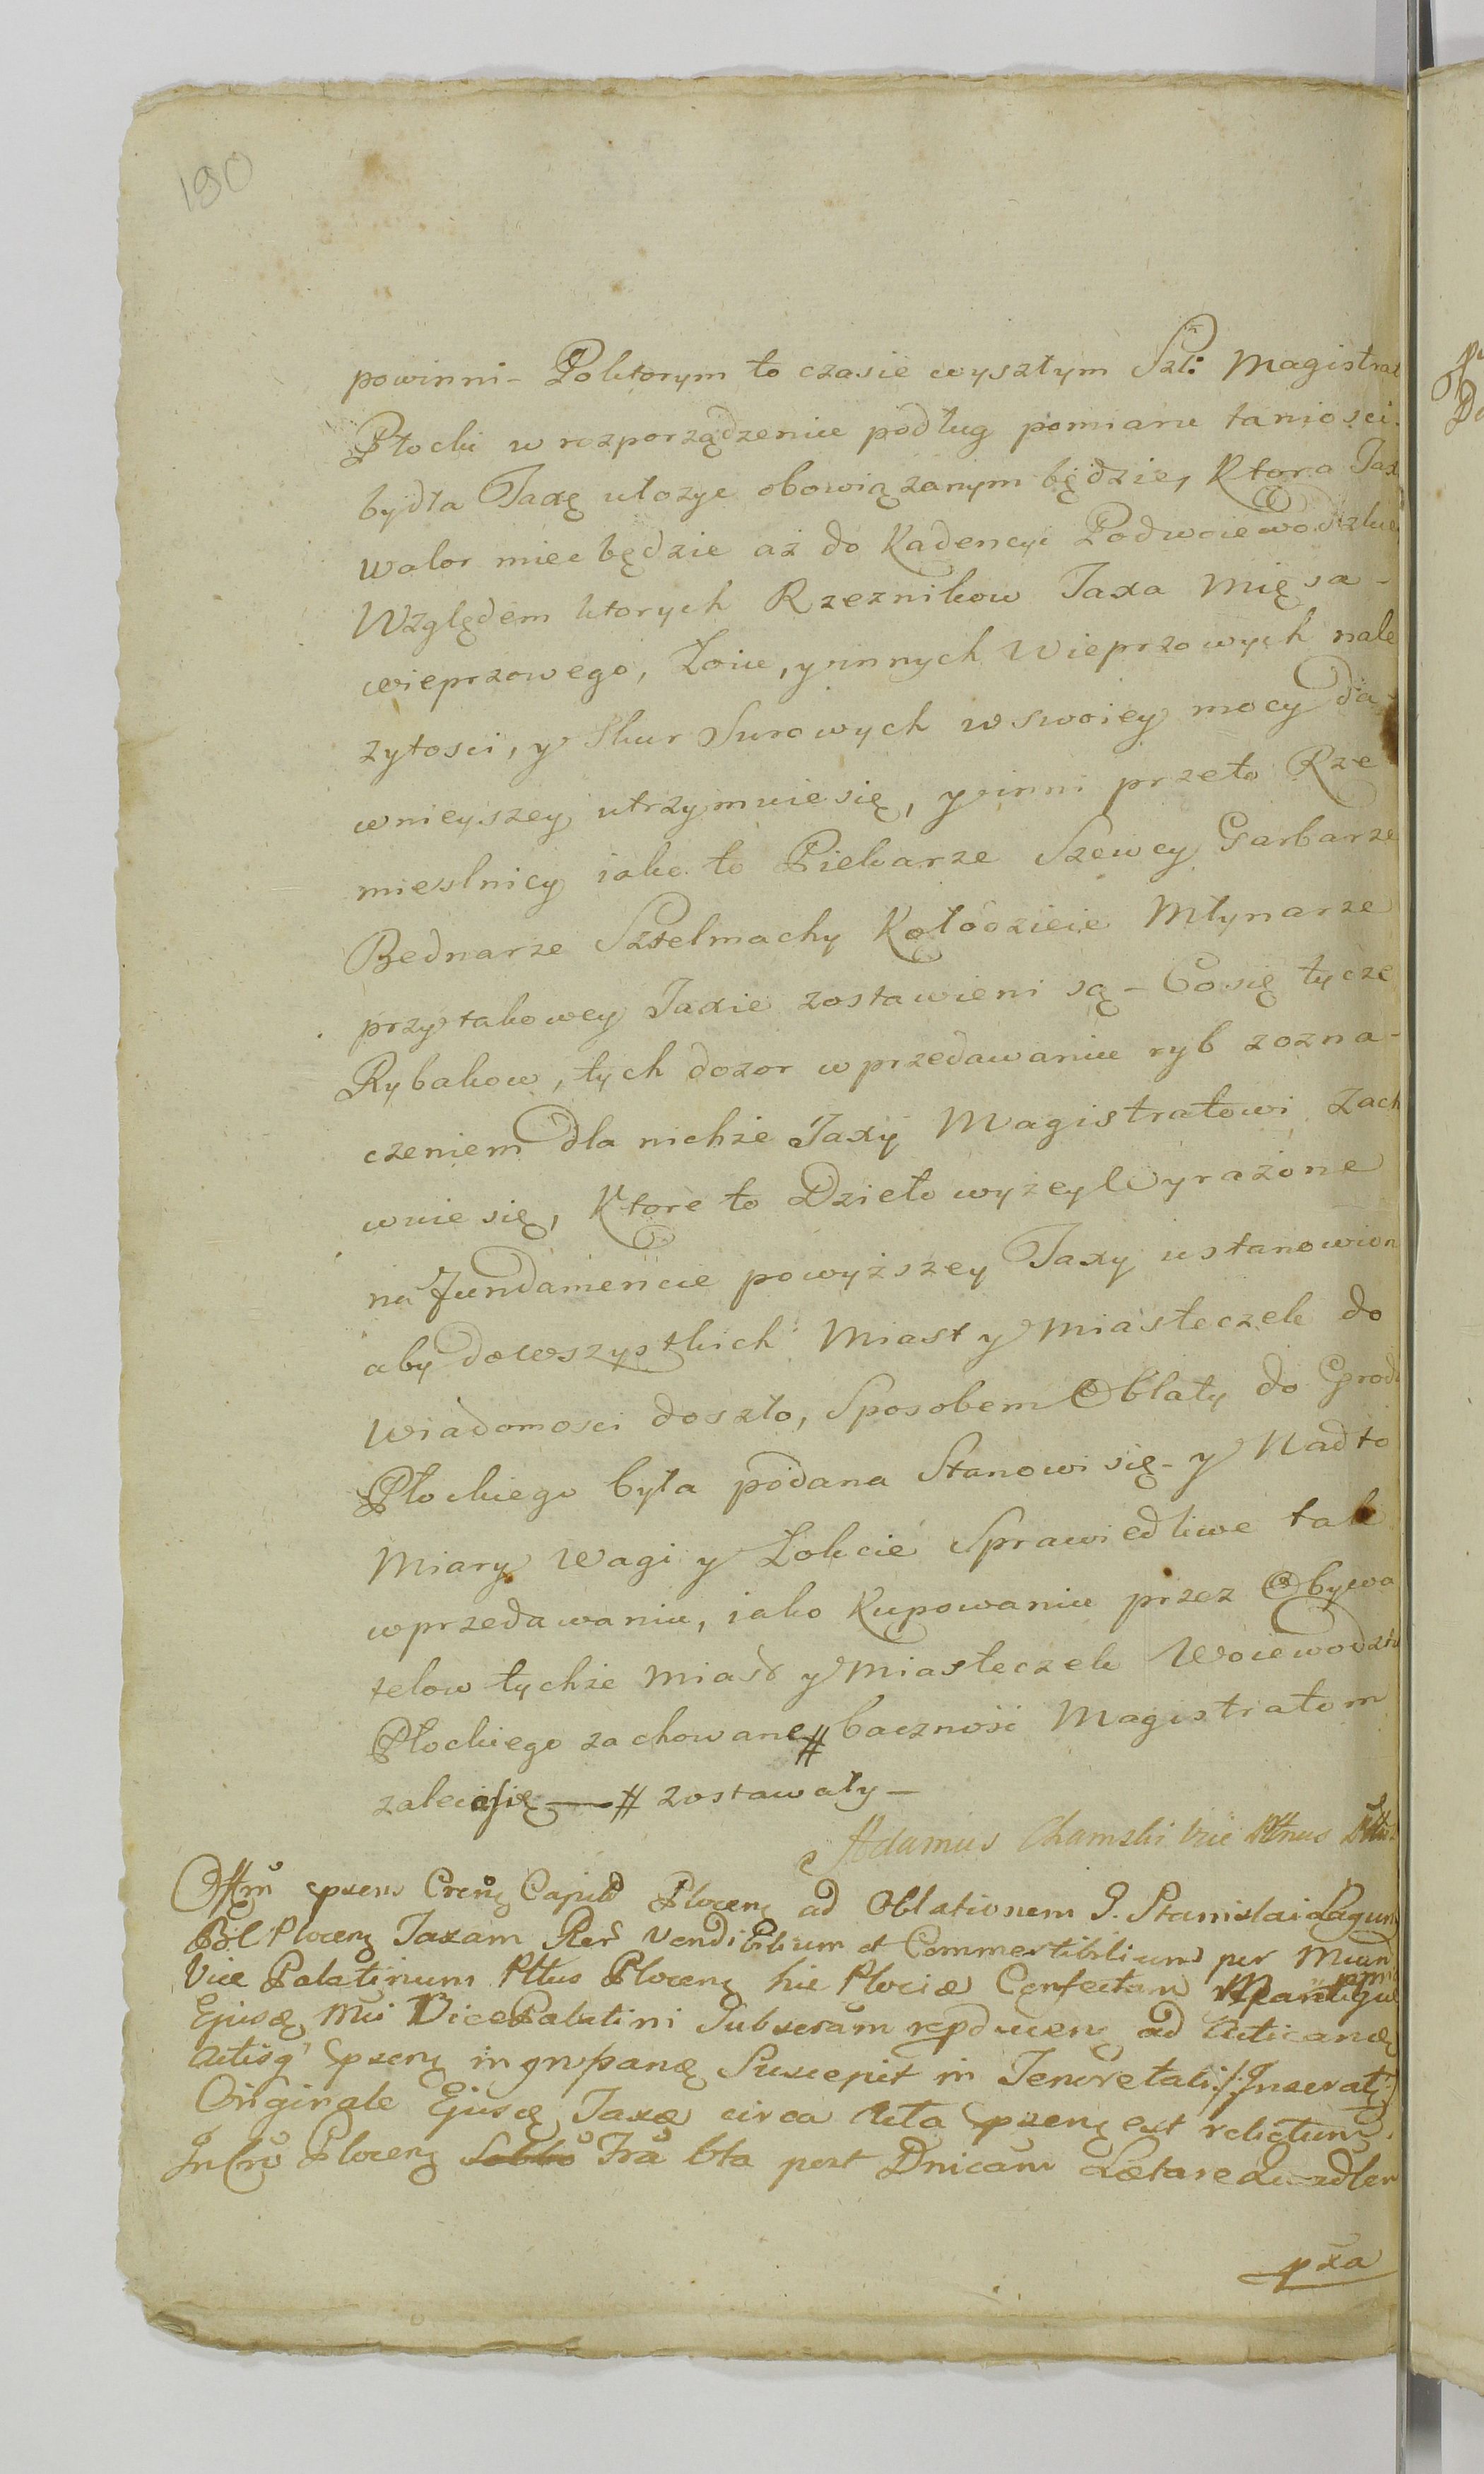 190
powinni – Poktorym to czasie wyszłym Szl: Magistrat
Płocki w rozporządzeniu podług pomiaru taniosci
bydła Taxę ułozyc obowiązanym będzie, Ktora Tax
walor miec będzie aż do Kadencyi Podwoiewodzkiey
Względem ktorych Rzeznikow Taxa Mięsa –
wieprzowego, Łoiu, y innych Wieprzowych nale
zytosci, y Skur Surowych w swoiey mocy da –
wnieyszey utrzymuie się, y inni przeto Rze
mieslnicy iako to Piekarze Szewcy Garbarze
Bednarze Sztelmachy Kołodzieie Młynarze
przy takowey Taxie zostawieni są – Co się tycze
Rybakow, tych dozor w przedawaniu ryb z ozna –
czeniem dla nichże Taxy Magistratowi zach
wuie się, Ktore to Dzieło wyzey Wyrażone
na fundamencie powyższey Taxy ustanowion
aby do wszystkich Miast y Miasteczek do
wiadomosci doszło, Sposobem Oblaty do Grodu
Płockiego była podana Stanowi się – y Nadto
Miary Wagi y Łokcie Sprawiedliwe tak
w przedawaniu, iako Kupowaniu przez Obywa
telow tychże Miast y Miasteczek Woiewodz
Płockiego zachowane # baczność Magistratom
zaleca się — # zostawały –
Adamus Chamski Vice
ad Oblationem G. Stanislai
Plocen Taxam Rer Vendibilium et Commertibilium per
Vice Palatinum Plttus Plocen hic Plociæ Confectam
Vice Palatini Subscram ad
Suscepit in Tenore tali /: Inserat :/
Originale Ejusd Taxæ circa Acta pzen est relictum.
Plocen Fra 6ta post Dnicam Lætare
pxa